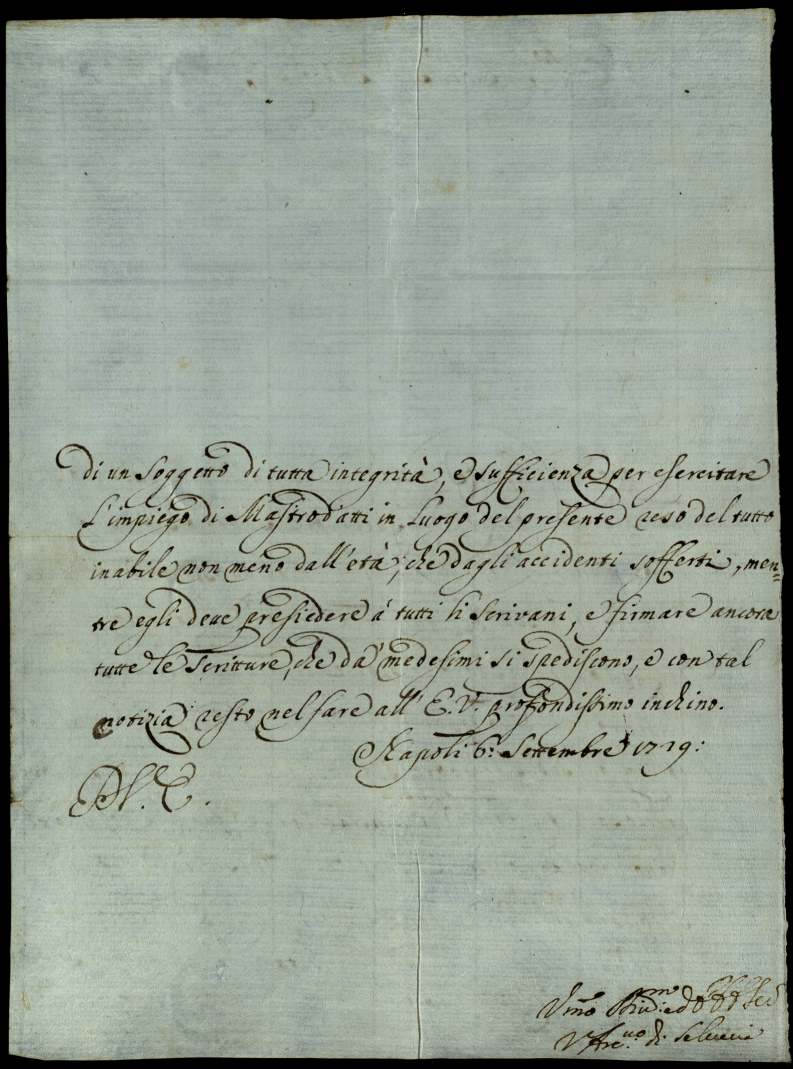 di un Soggetto di tutta integrità, e sufficienza per esercitare
L'impiego di Mastrod'atti in Luogo del presente reso del tutto
inabile non meno dall'età, che dagli accidenti sofferti, men=
tre egli deve presiedere à tutti li Scrivani, e firmare ancora
tutte le Scritture, che da' medesimi si spediscono, e con tal
notizia resto nel fare all' E. V. profondissimo inchino.
Napoli 6: Settembre 1719:
D. V. E.
Vmo
di Seleucia